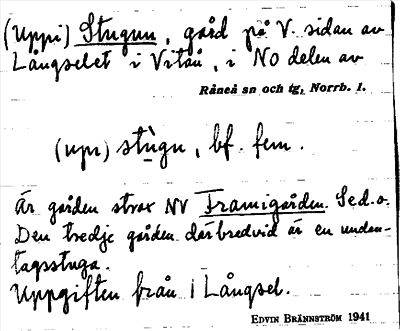 (Uppi) Stugun, gård på V. sidan av
Långselet i Vitån, i NO delen av
Råneå sn och tg, Norrb. l.
(upi) stùgu, bf. fem.
Är gården strax NV Framigården. Se d.o.
Den tredje gården därbredvid är en undan-
tagsstuga.
Uppgiften från i Långsel.
EDVIN BRÄNNSTRÖM 1941